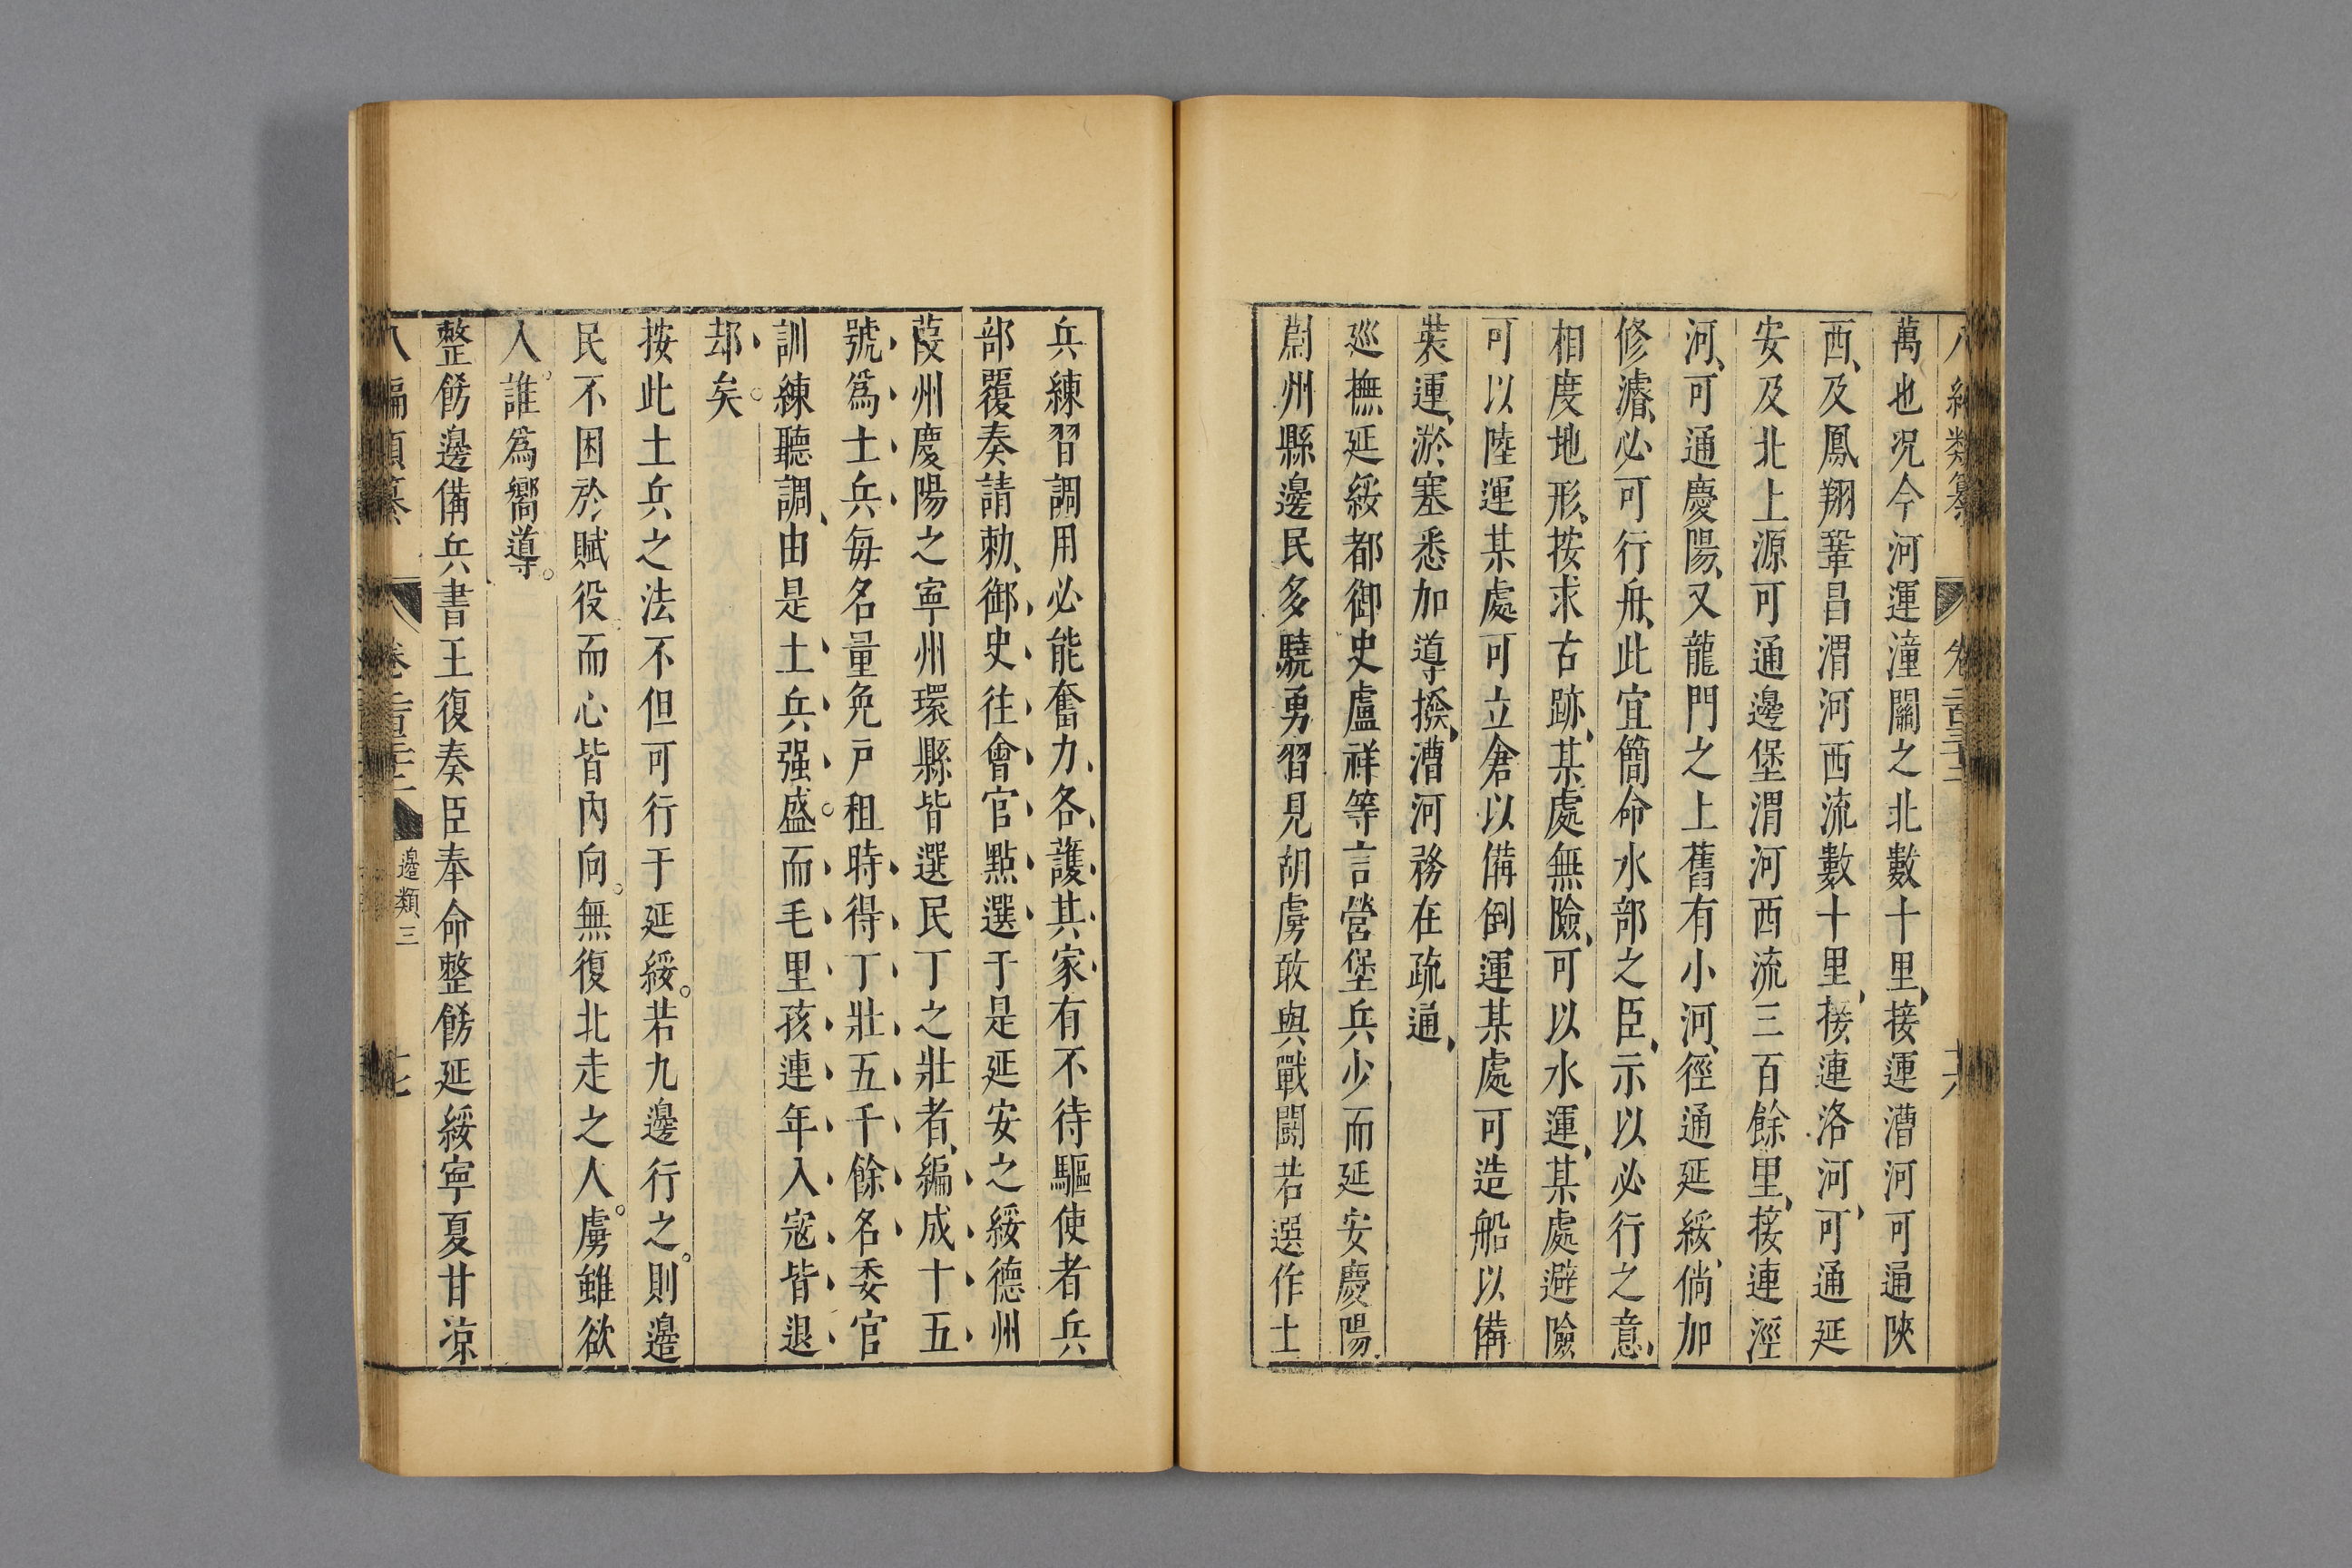 八編類纂
萬也况今河運潼關之北數十里、接運漕河可通陝
西、及鳳翔鞏昌渭河西流數十里、接連洛河、可通延
安及北上源可通邊堡渭河西流三百餘里、接連涇
河、可通慶陽、又龍門之上舊有小河、徑通延綏、倘加
修濬、必可行舟、此宜簡命水部之臣、示以必行之意、
相度地形、按求古跡、某處無險、可以水運、某處避險
可以陸運某處可立倉以備倒運某處可造船以備
裝運、淤塞悉加導撥、漕河務在疏通、
巡撫延綏都御史盧祥等言營堡兵少而延安慶陽
府州縣邊民多驍勇習見胡虜敢與戰鬭若選作土
兵練習調用必能奮力、各護其家有不待驅使者兵
部覆奏請勅、御史往會官點選于是延安之綏德州
葭州慶陽之寧州環縣皆選民丁之壯者、編成十五
號爲士兵每名量免戸租時得丁壯五千餘名委官
訓練聽調、由是土兵强盛。而毛里孩連年入寇皆退
却矣。
按此土兵之法不但可行于延綏。若九邊行之。則邊
民不困於賦役而心皆内向。無復北走之人。虜雖欲
入。誰爲嚮導。
整飭邊備兵書王復奏臣奉命整飭延綏寧夏甘凉
八編類纂
邊類三